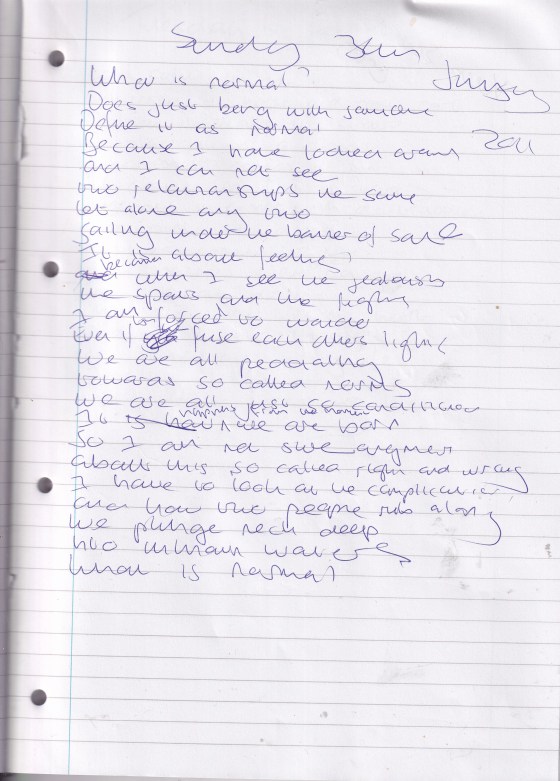 Sunday 30th January 2011
What is normal?
Does just being with someone
Define it as normal
Because I have looked around
and I can not see
two relationships the same
let alone any two
sailing under the banner of sane
Is it about feeling?
because when I see the jealousy
the spats and the fights
I am forced to wonder
Even if fuse each others lights
We are all pedalling
towards so called norms
we are all just so conditioned
It happens from the moment we are born
So I am not sure anymore
about this so called right and wrong
I have to look at the complications
and how two people rub along
We plunge neck deep
into unknown waters
What is normal